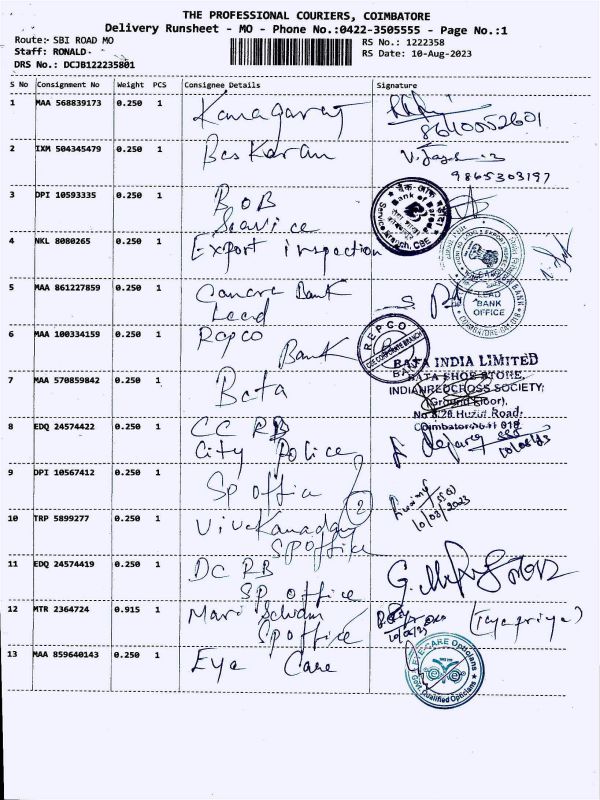 THE PROFESSIONAL COURIERS, COIMBATORE
Delivery Runsheet - MO - Phone No.:0422-3505555 - Page No.:1
Route:- SBI ROAD MO
RS No.: 1222358
Staff: RONALD-
RS Date: 10-Aug-2023
DRS No.: DCJB122235801
S No Consignment No Weight PCS Consignee Details Signature
1 MAA 568839173 0.250 1 Kanagaraj
8640052601
2 IXM 504345479 0.250 1 Baskaran
9865303197
3 DPI 10593335 0.250 1 BOB
Service
4 NKL 8080265 0.250 1 Export inspection
5 MAA 861227859 0.250 1 Canara Bank
Lead
LEAD
BANK
OFFICE
6 MAA 100334159 0.250 1 Repco
Bank
REPCO
BANK
BATA INDIA LIMITED
BATA SHOE STORE,
INDIANREDCROSS SOCIETY,
(Ground Floor),
7 MAA 570859842 0.250 1 Bata
No 8/26 Huzur Road,
Coimbatore-641 018
8 EDQ 24574422 0.250 1 CC RB
City Police
9 DPI 10567412 0.250 1 SP Office
2
10 TRP 5899277 0.250 1 Vivekanadan
SP Office
11 EDQ 24574419 0.250 1 DC RB
SP office
12 MTR 2364724 0.915 1 Mari Selvam
SP office
(Jayapriya)
13 MAA 859640143 0.250 1 Eye Care
EYE CARE Opticians
Govt. Qualified Opticians